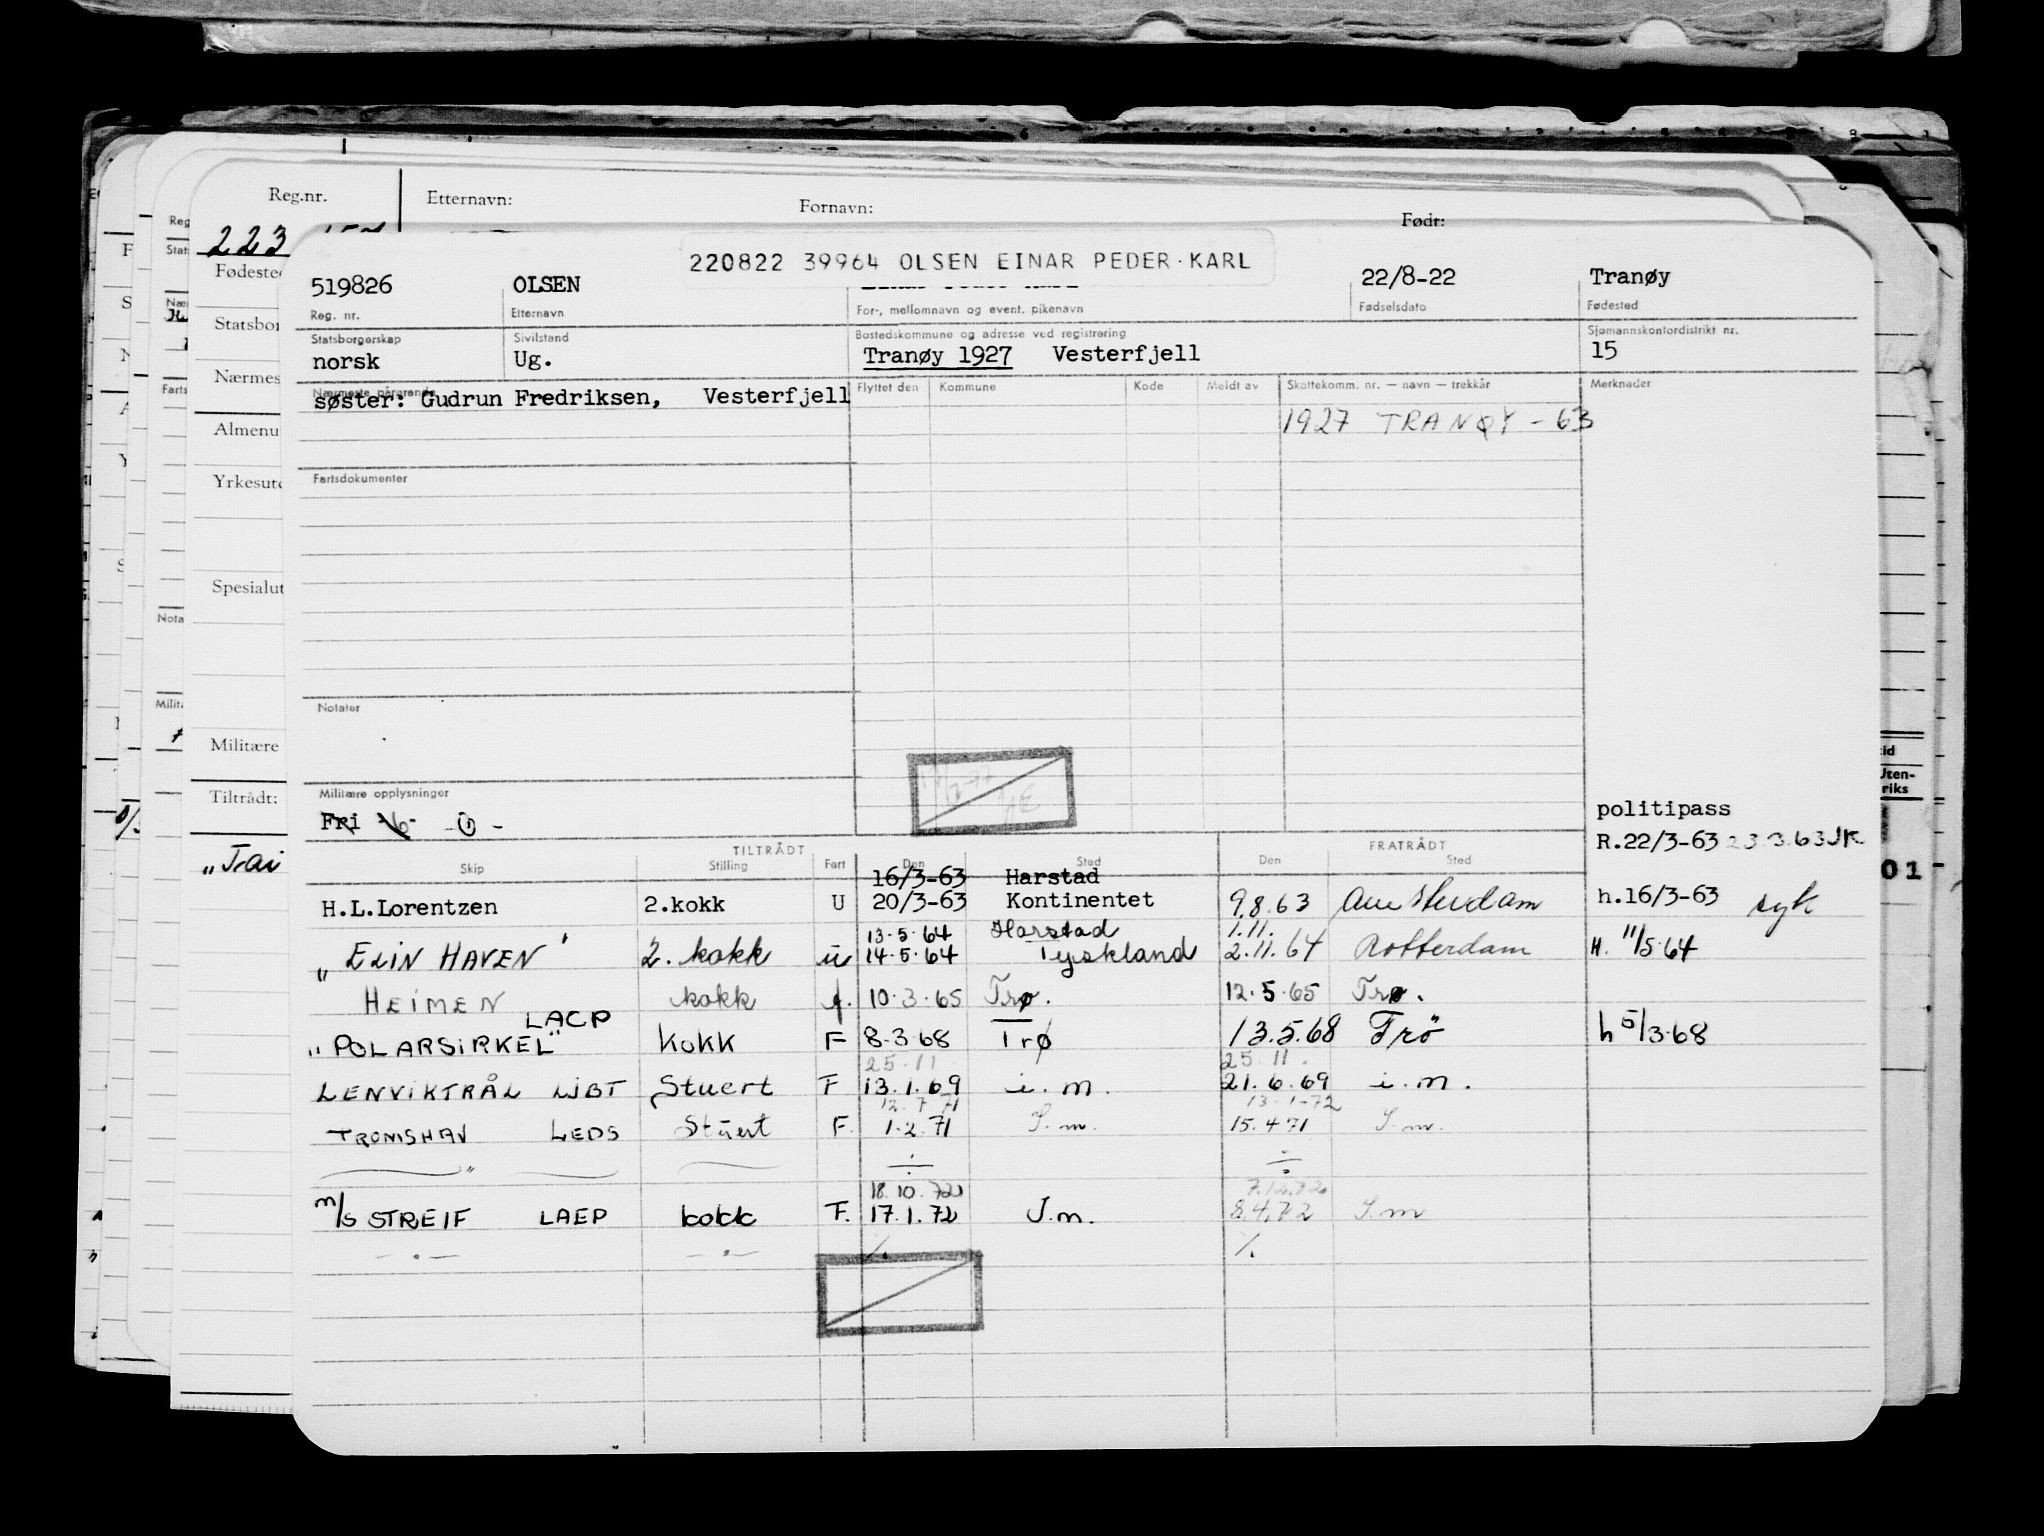 Reg.nr.
Etternavn:
Fornavn:
Født:
223
Fødested
Statsbor
Nærmes
Almenu
Yrkesutd
Spesialut
Militære
Tiltrådt:
„Tai
220822 39964 OLSEN EINAR PEDER·KARL
519826 OLSEN 22/8-22 Tranøy
Reg. nr. Etternavn For-, mellomnavn og event. pikenavn Fødselsdato Fødested
Statsborgerskap Sivilstand Bostedskommune og adresse ved registrering Sjømannskontordistrikt nr.
norsk Ug. Tranøy 1927 Vesterfjell 15
Nærmeste pårørende Flyttet den Kommune Kode Meldt av Skattekomm. nr. — navn — trekkår Merknader
søster: Gudrun Fredriksen, Vesterfjell
1927 TRANØY - 63
Fartsdokumenter
Notater
Militære opplysninger
Fri
politipass
R.22/3-63 23.3.63JK
TILTRÅDT FRATRÅDT
Skip Stilling Fart Den Sted Den Sted
16/3-63 Harstad
H.L.Lorentzen 2.kokk U 20/3-63 Kontinentet 9.8.63 Amsterdam h.16/3-63 syk
13.5.64 Harstad 1.11.
„ELIN HAVEN" 2. kokk u 14.5.64 Tyskland 2.11.64 Rotterdam H. 11/5.64
HEIMEN kokk f. 10.3.65 Trø. 12.5.65 Trø.
LACP
„POLARSIRKEL" Kokk F 8.3.68 Trø 13.5.68 Trö h 5/3.68
25.11 25.11.
LENVIKTRÅL LJBT Stuert F 13.1.69 i.m. 21.6.69 i.m.
12.7.71 13.1-72
TROMSHAV LEDS Stuert F. 1.2.71 I.m. 15.4.71 I.m.
"
18.10.72 7.12.72
m/s STREIF LAEP kokk F. 17.1.72 I.m. 8.4.72 I.m
-"- -"- %. %.
01